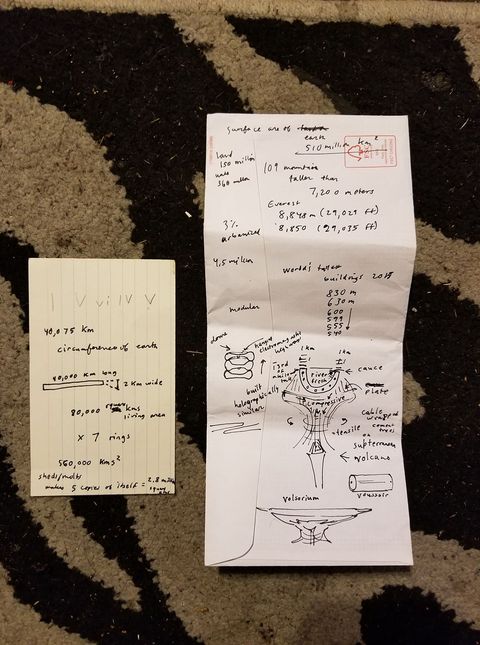 I V VII IV V
40,075 Km
circumference of earth
40,000 km long
2 km wide
80,000 square kms
living area
x 7 rings
560,000 Kms²
sheds/molts
makes 5 copies of itself = 2.8 million
surface are of
earth
510 million km²
land
150 million
360 million
109 mountain
taller than
7,200 meters
Everest
8,848m (29,029 ft)
8,850 (29,035 ft)
3%
urbanized
4.5 million
world's tallest
buildings
830 m
630 m
600
599
555
540
modular
hangar
electromagnetic
1 km
1 km
river
from
plate
compressive
built
holographically
similar
cable
wrapped
cement
tensile
on
subterranean
volcano
voussoir
velsorium